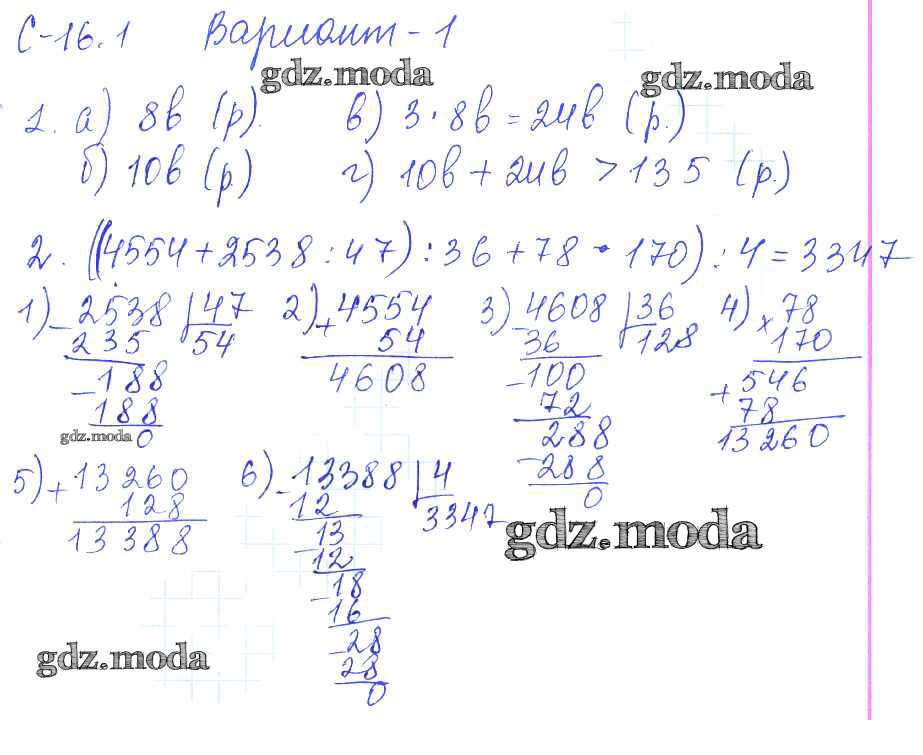 С-16.1 Вариант-1
gdz.moda gdz.moda
1. а) 8в (р). в) 3·8в = 24в (р.)
б) 10в (р) г) 10в + 24в > 135 (р.)
2. ((4554 + 2538 : 47) : 36 + 78 · 170) : 4 = 3347
1) - 2538 | 47 2) + 4554 3) - 4608 | 36 4) × 78
235 54 54 36 128 170
- 188 4608 - 100 + 546
188 72 78
gdz.moda 0 288 13260
- 288
0
5) + 13260 6) - 13388 | 4
128 12 3347
13388 13
gdz.moda
- 12
- 18
16
- 28
gdz.moda 28
0